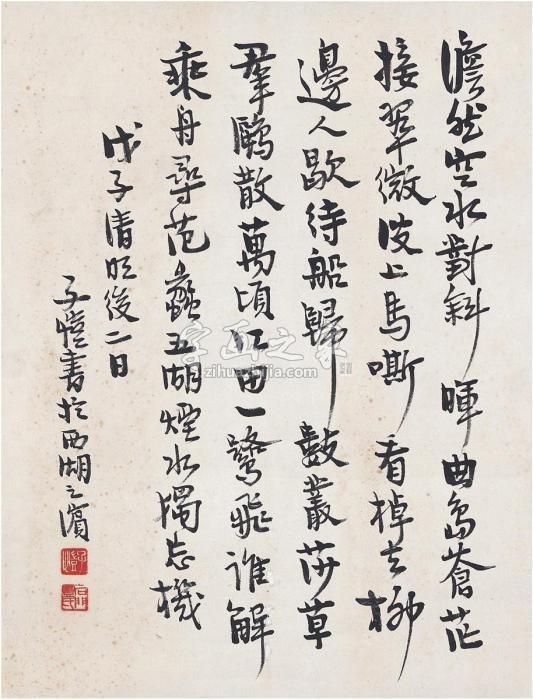 澹然空水對斜暉曲島蒼茫
接翠微波上馬嘶看掉去柳
邊人歇待船歸數叢莎草
羣鷗散萬頃江田一鷺飛誰解
乘舟尋范蠡五湖煙水獨忘機
戊子清明後二日
子愷書於西湖之濱
字画之家
zihuazhijia.com